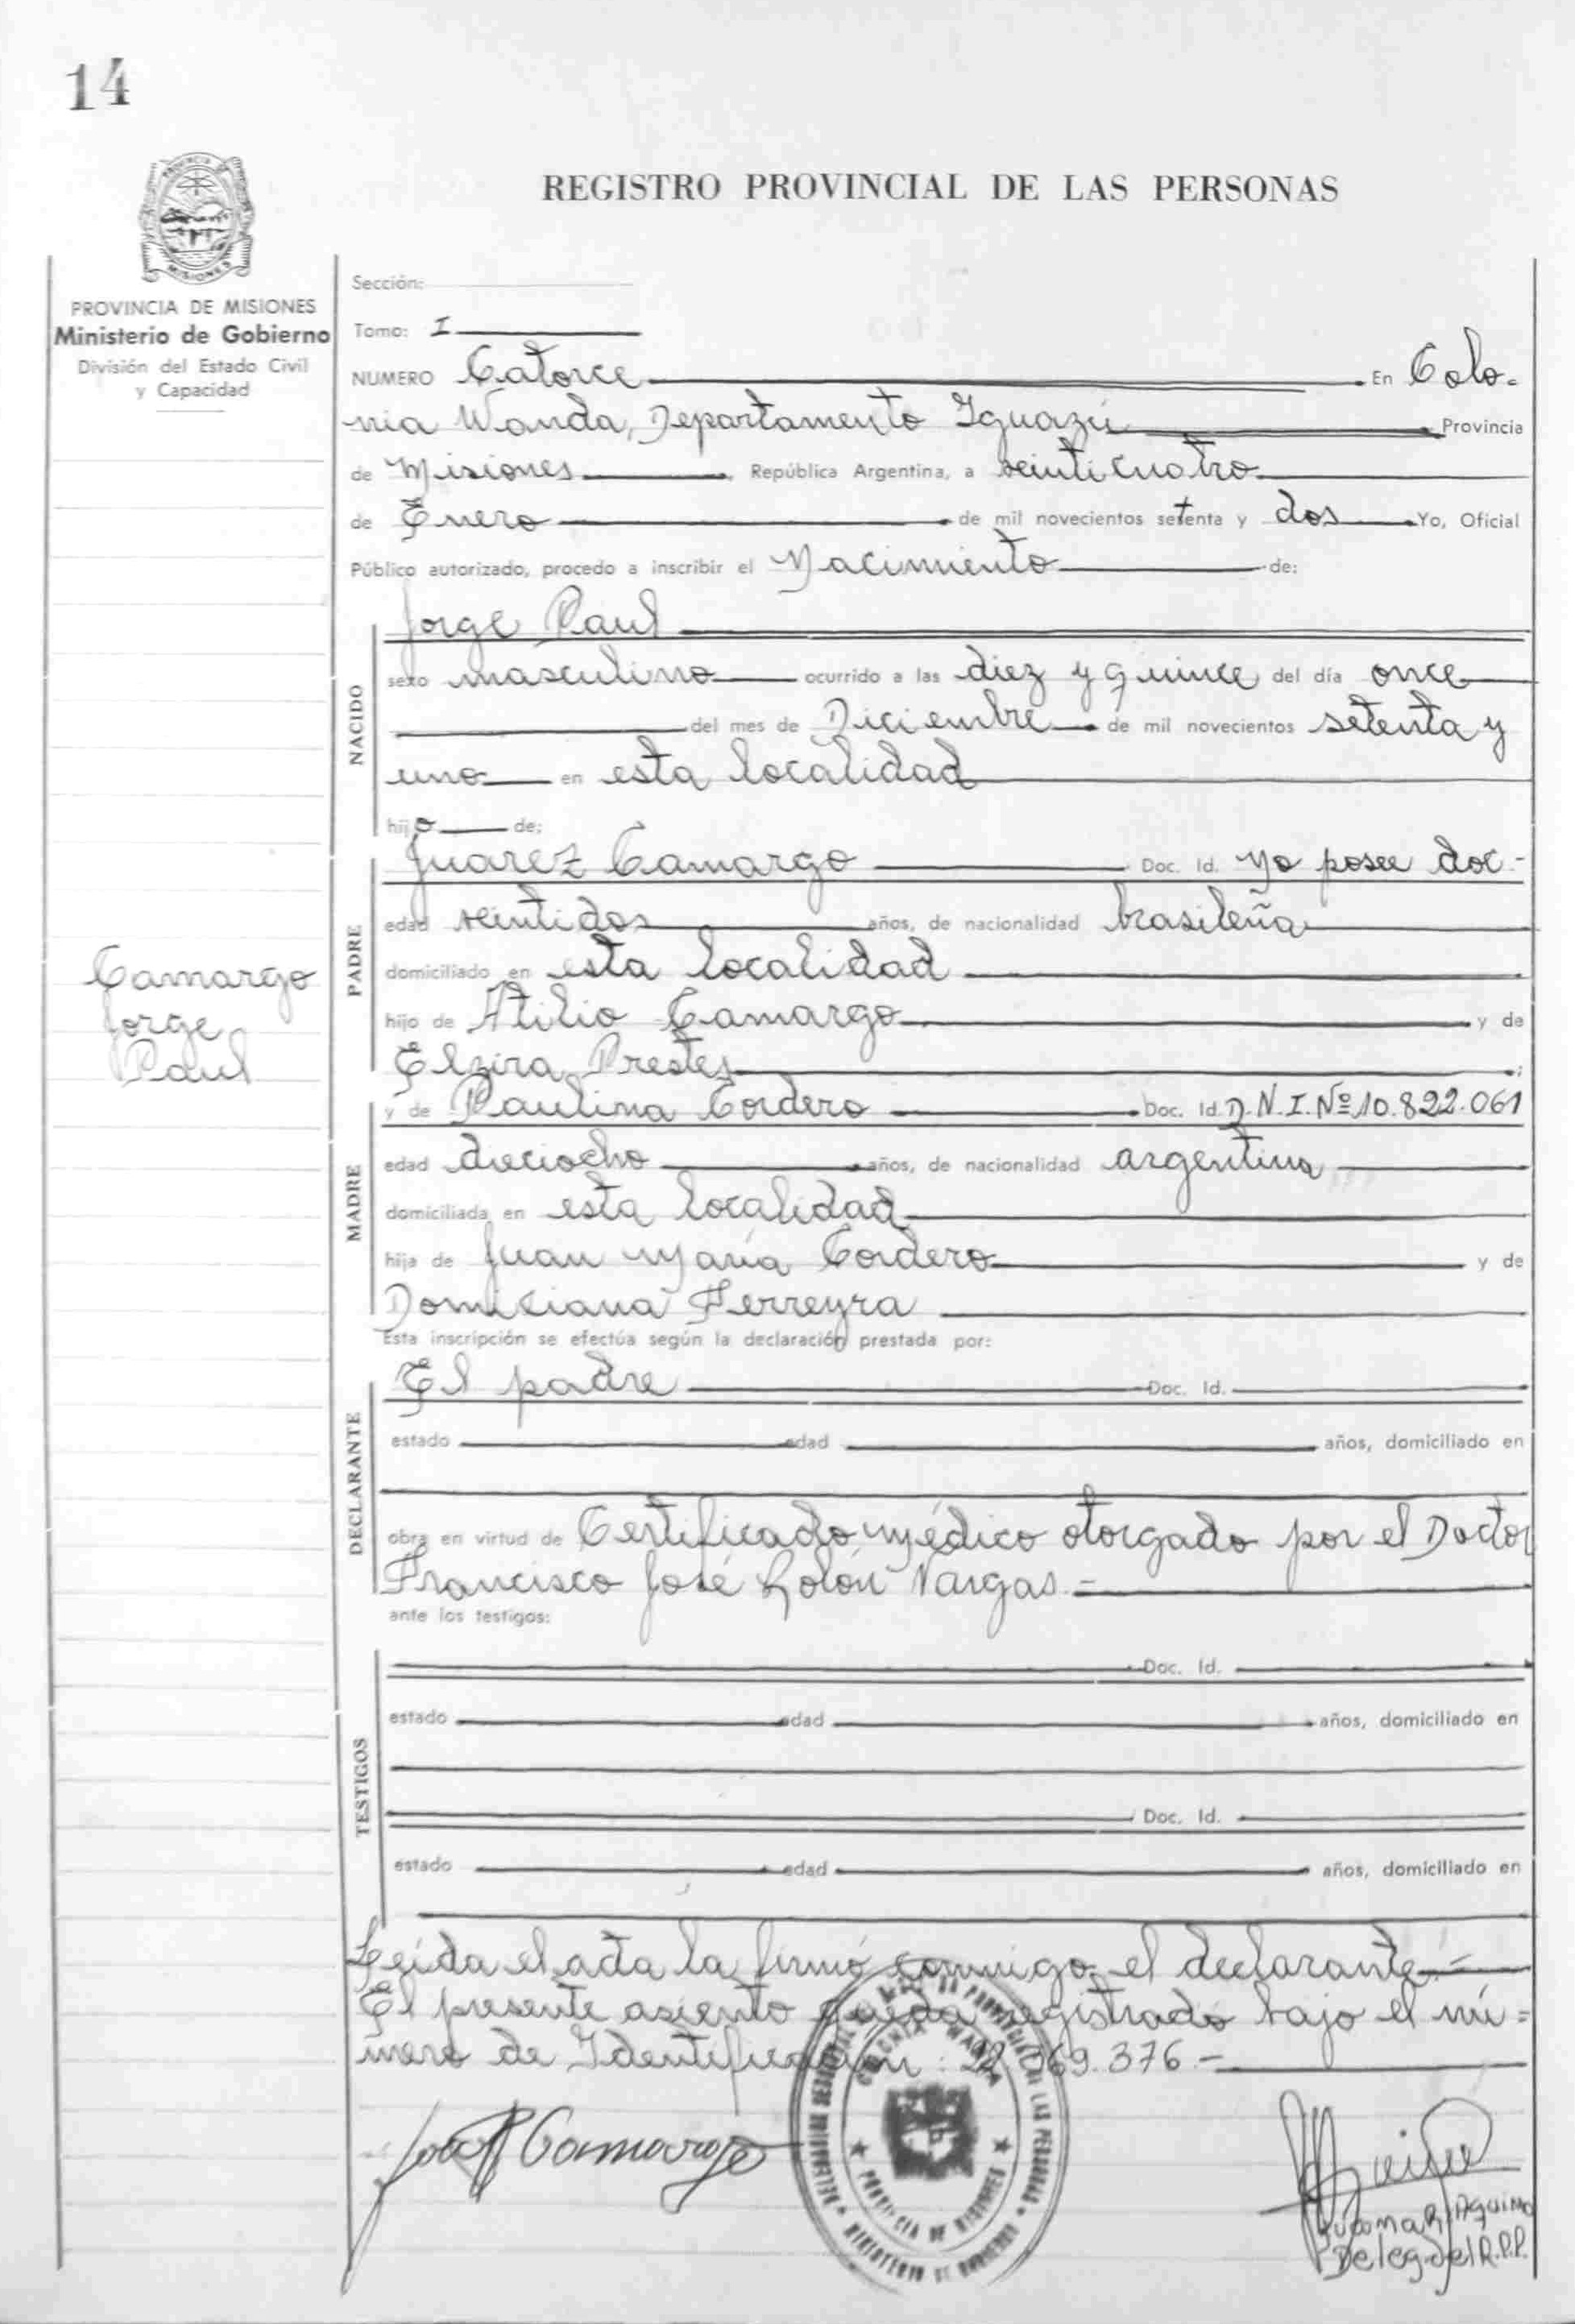 14
PROVINCIA DE
MISIONES
REGISTRO PROVINCIAL DE LAS PERSONAS
PROVINCIA DE MISIONES
Ministerio de Gobierno
División del Estado Civil
y Capacidad
Sección:
Tomo: I
NUMERO Catorce En Colo-
nia Wanda, Departamento Iguazú Provincia
de Misiones, República Argentina, a veinticuatro
de Enero de mil novecientos setenta y dos Yo, Oficial
Público autorizado, procedo a inscribir el Nacimiento de:
NACIDO
Jorge Raul
sexo masculino ocurrido a las diez y quince del día once
del mes de Diciembre de mil novecientos setenta y
uno en esta localidad
hijo de:
PADRE
Juarez Camargo Doc. Id. No posee doc.-
edad veintidos años, de nacionalidad brasileña
domiciliado en esta localidad
hijo de Atilio Camargo y de
Elzira Prestes;
Camargo
Jorge
Raul
MADRE
y de Paulina Cordero Doc. Id. D.N.I. Nº 10.822.061
edad dieciocho años, de nacionalidad argentina
domiciliada en esta localidad
hija de Juan María Cordero y de
Domiciana Ferreyra
Esta inscripción se efectúa según la declaración prestada por:
DECLARANTE
El padre Doc. Id.
estado edad años, domiciliado en
obra en virtud de Certificado médico otorgado por el Doctor
Francisco José Rolón Vargas.=
ante los testigos:
TESTIGOS
Doc. Id.
estado edad años, domiciliado en
Doc. Id.
estado edad años, domiciliado en
Leída el acta la firmó conmigo el declarante.=
El presente asiento queda registrado bajo el nú=
mero de Identificación: 22.069.376.-
Camargo
COLONIA WANDA
PROVINCIA DE MISIONES
MINISTERIO DE GOBIERNO
Aquino
Deleg. del R.P.P.